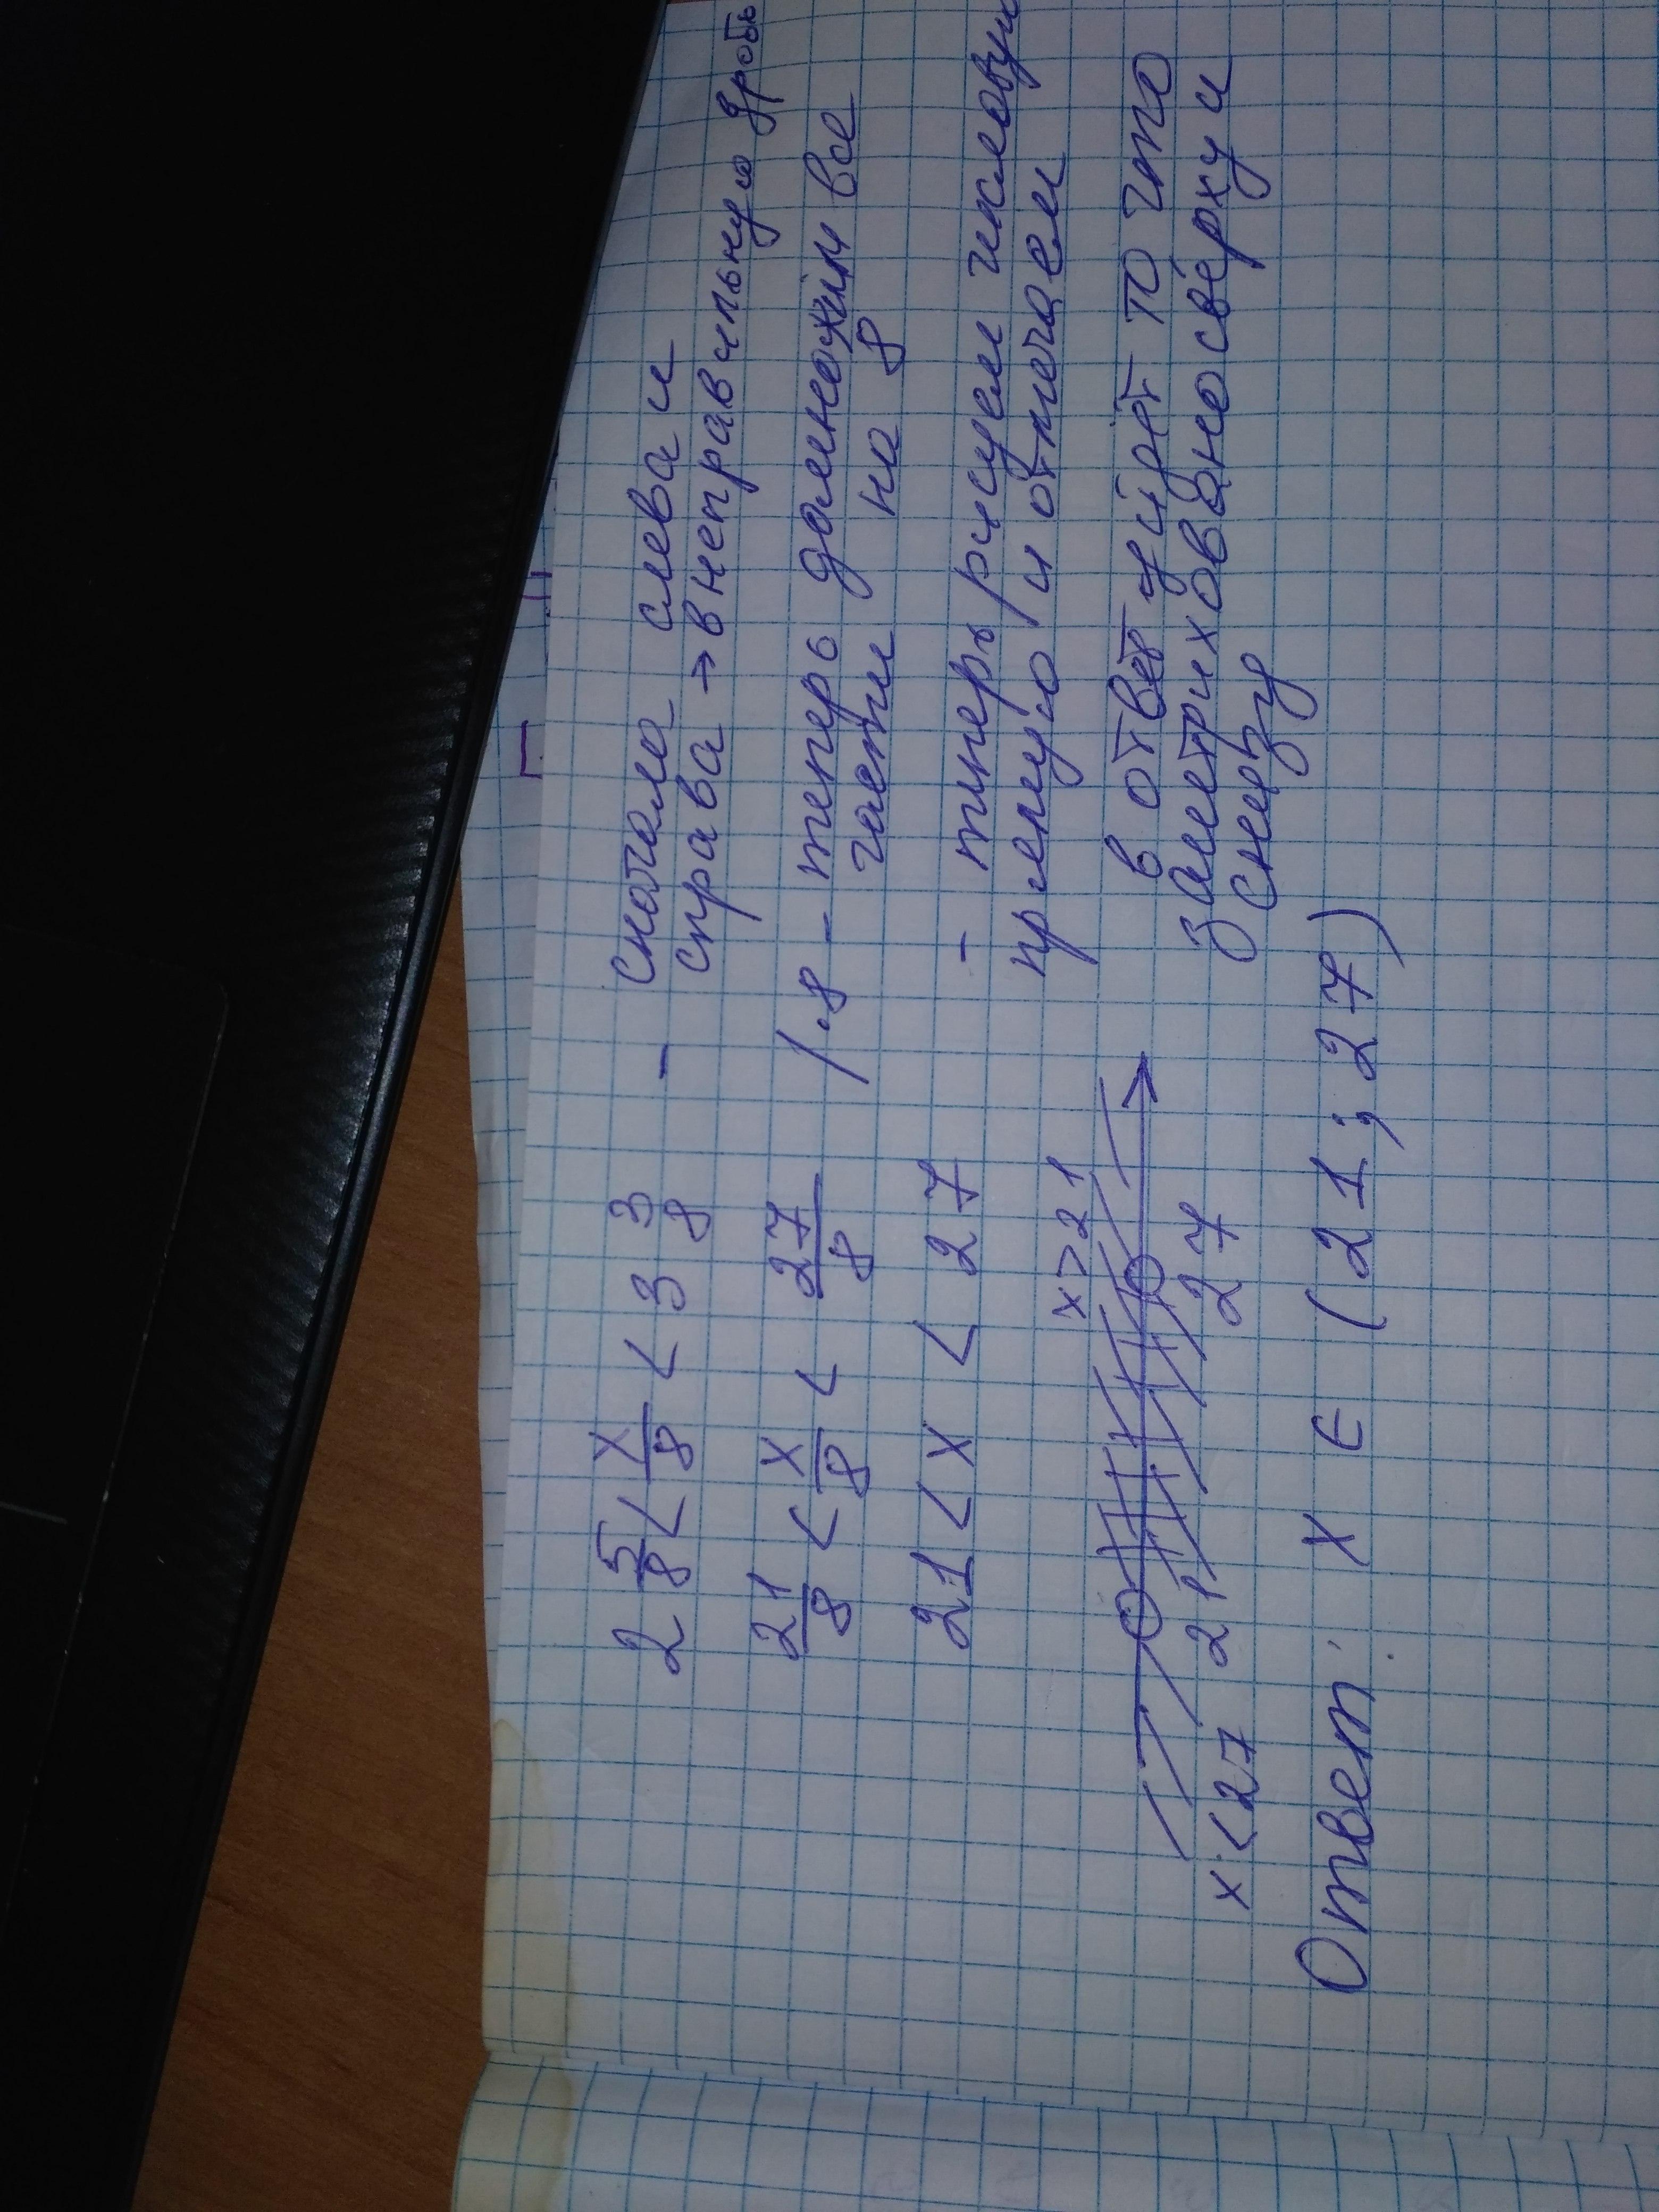 2 5/8 < x/8 < 3 3/8 - сначала слева и
справа → в неправильную дробь
21/8 < x/8 < 27/8 /·8 - теперь домножим все
части на 8
21 < x < 27 - типерь рисуем числовую
прямую и отмечаем
x > 21
21 27
x < 27
в ответ уйдёт то что
заштриховано сверху и
снизу
Ответ: x ∈ (21; 27)